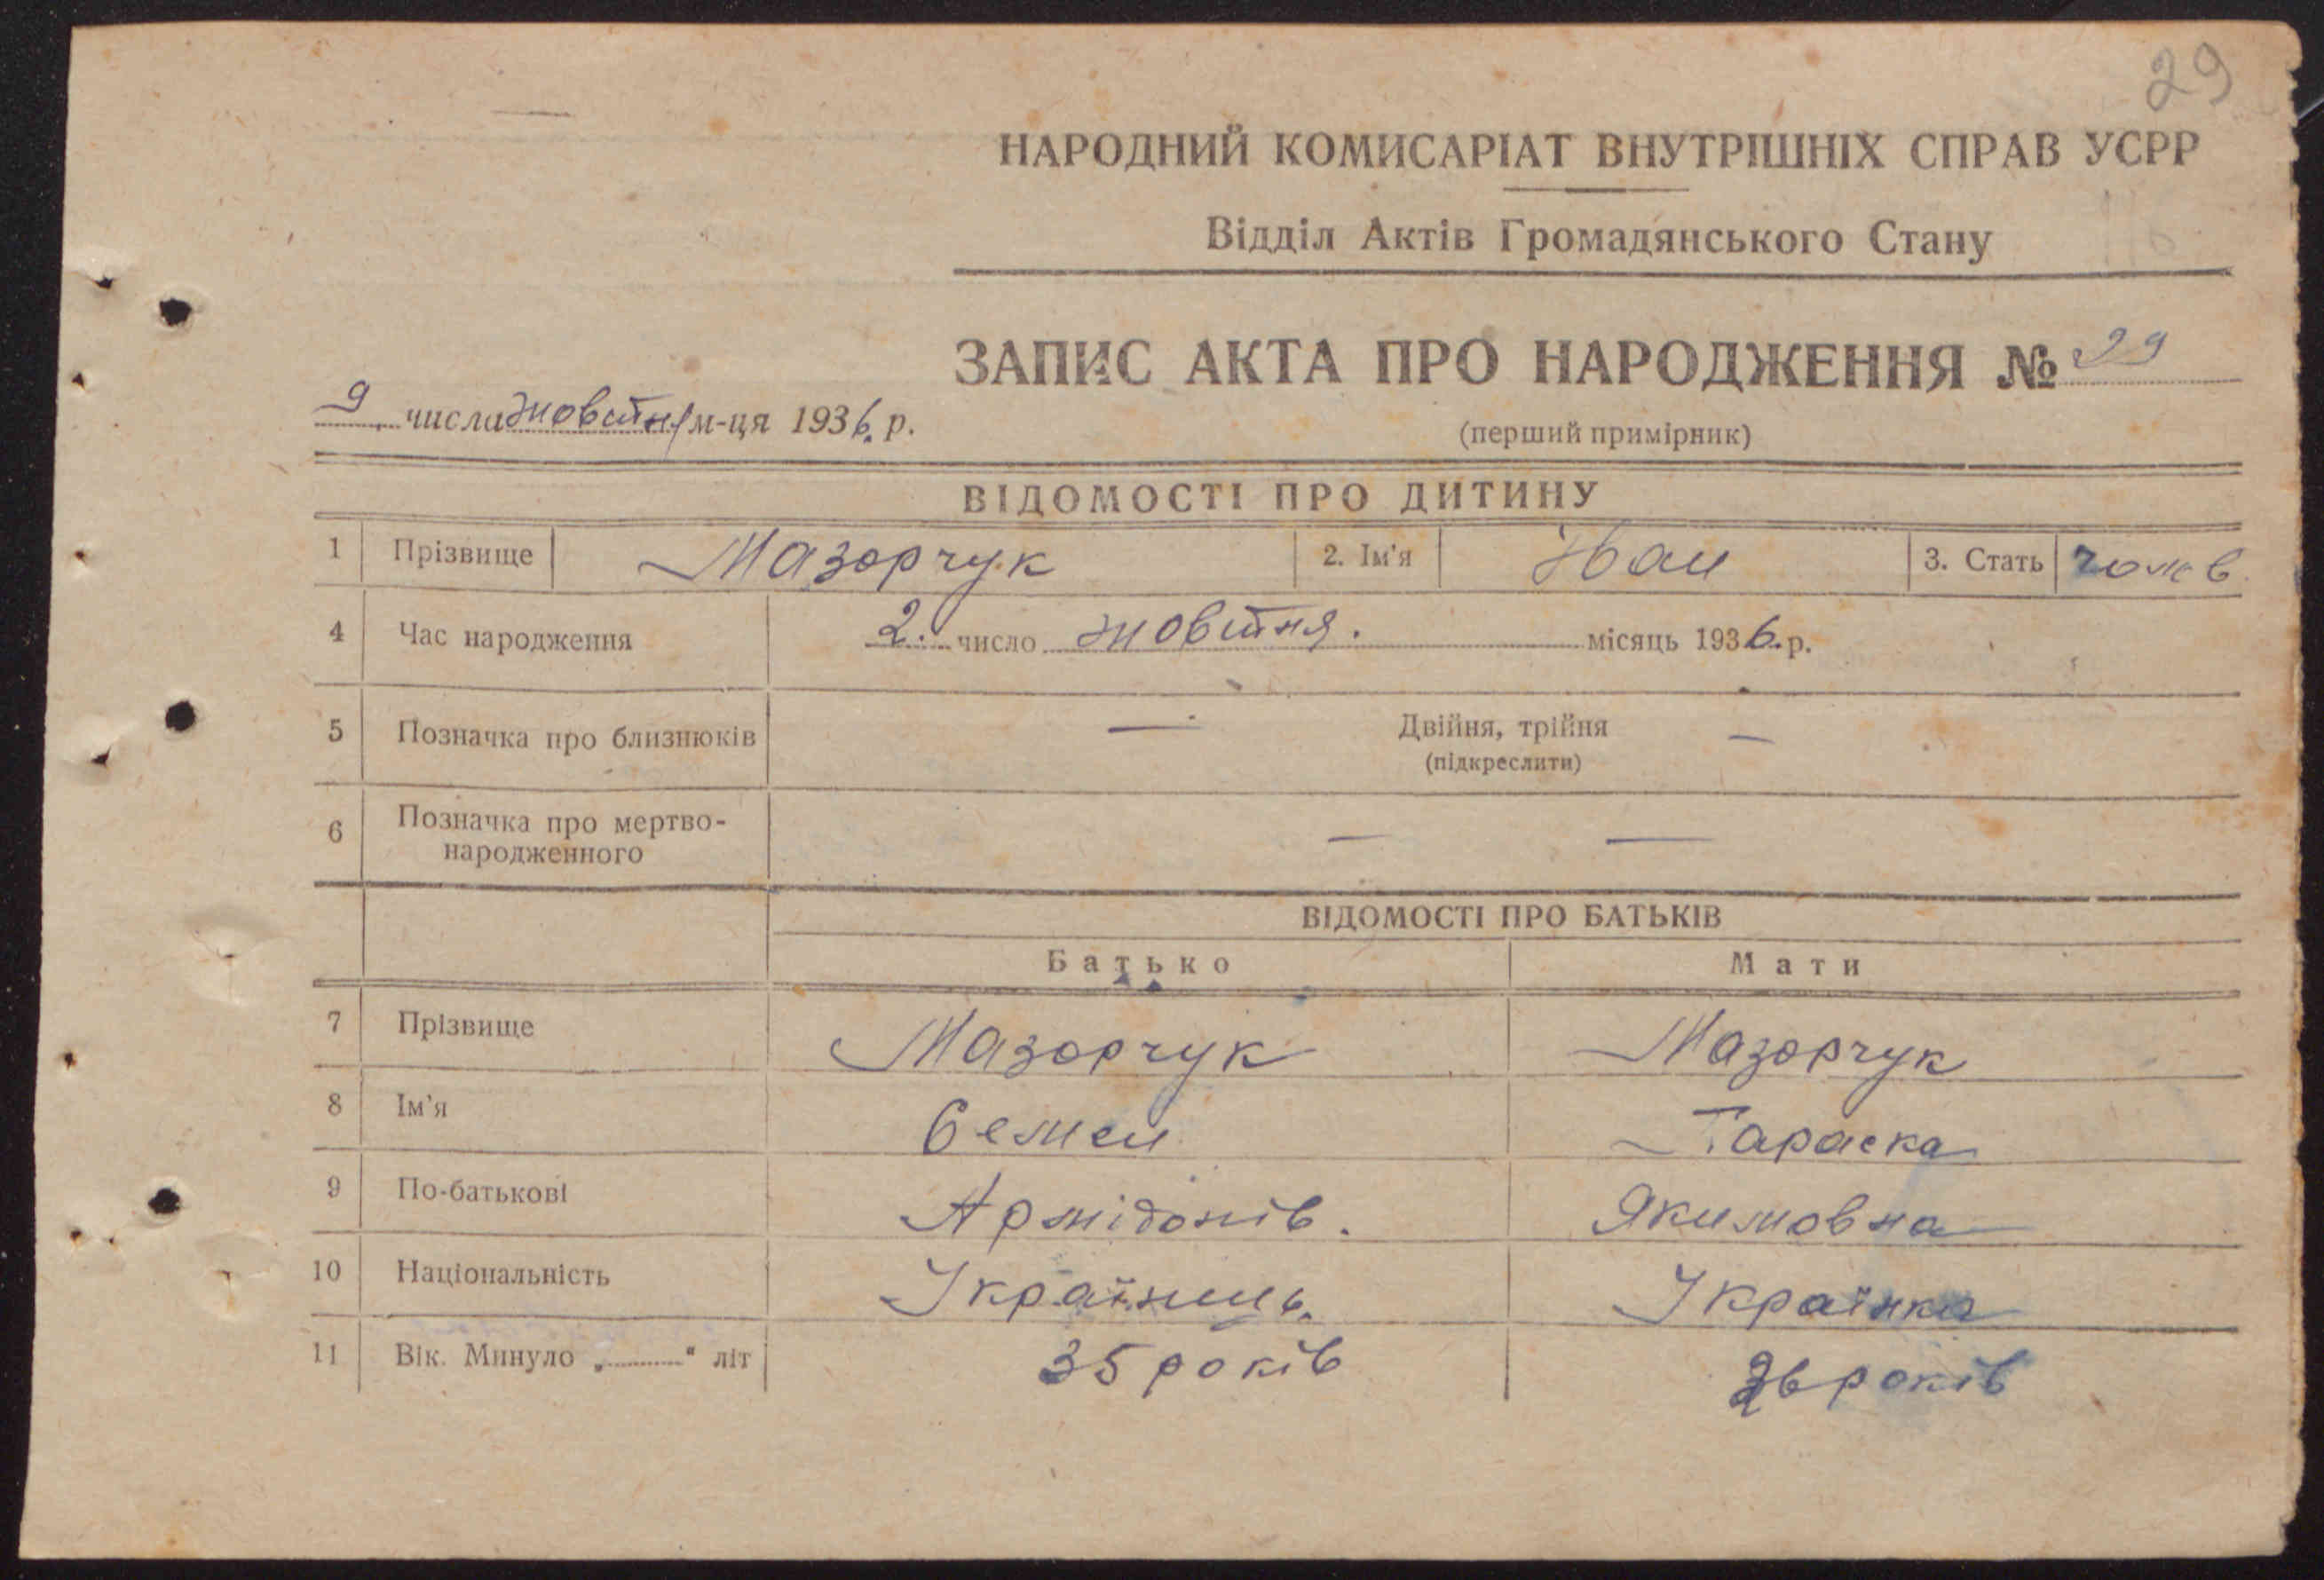 29
НАРОДНИЙ КОМИСАРІАТ ВНУТРІШНІХ СПРАВ УСРР
Відділ Актів Громадянського Стану
ЗАПИС АКТА ПРО НАРОДЖЕННЯ № 29
9 числа жовтня м-ця 1936. р.
(перший примірник)
ВІДОМОСТІ ПРО ДИТИНУ
1 Прізвище Мазорчук 2. Ім'я Іван 3. Стать чолов.
4 Час народження 2. число жовтня. місяць 1936. р.
5 Позначка про близнюків — Двійня, трійня —
(підкреслити)
6 Позначка про мертво-
народженного — —
ВІДОМОСТІ ПРО БАТЬКІВ
Батько Мати
7 Прізвище Мазорчук Мазорчук
8 Ім'я Семен Параска
9 По-батькові Якимовна
10 Національність Українець. Українка
11 Вік. Минуло „ “ літ 35 років 36 років